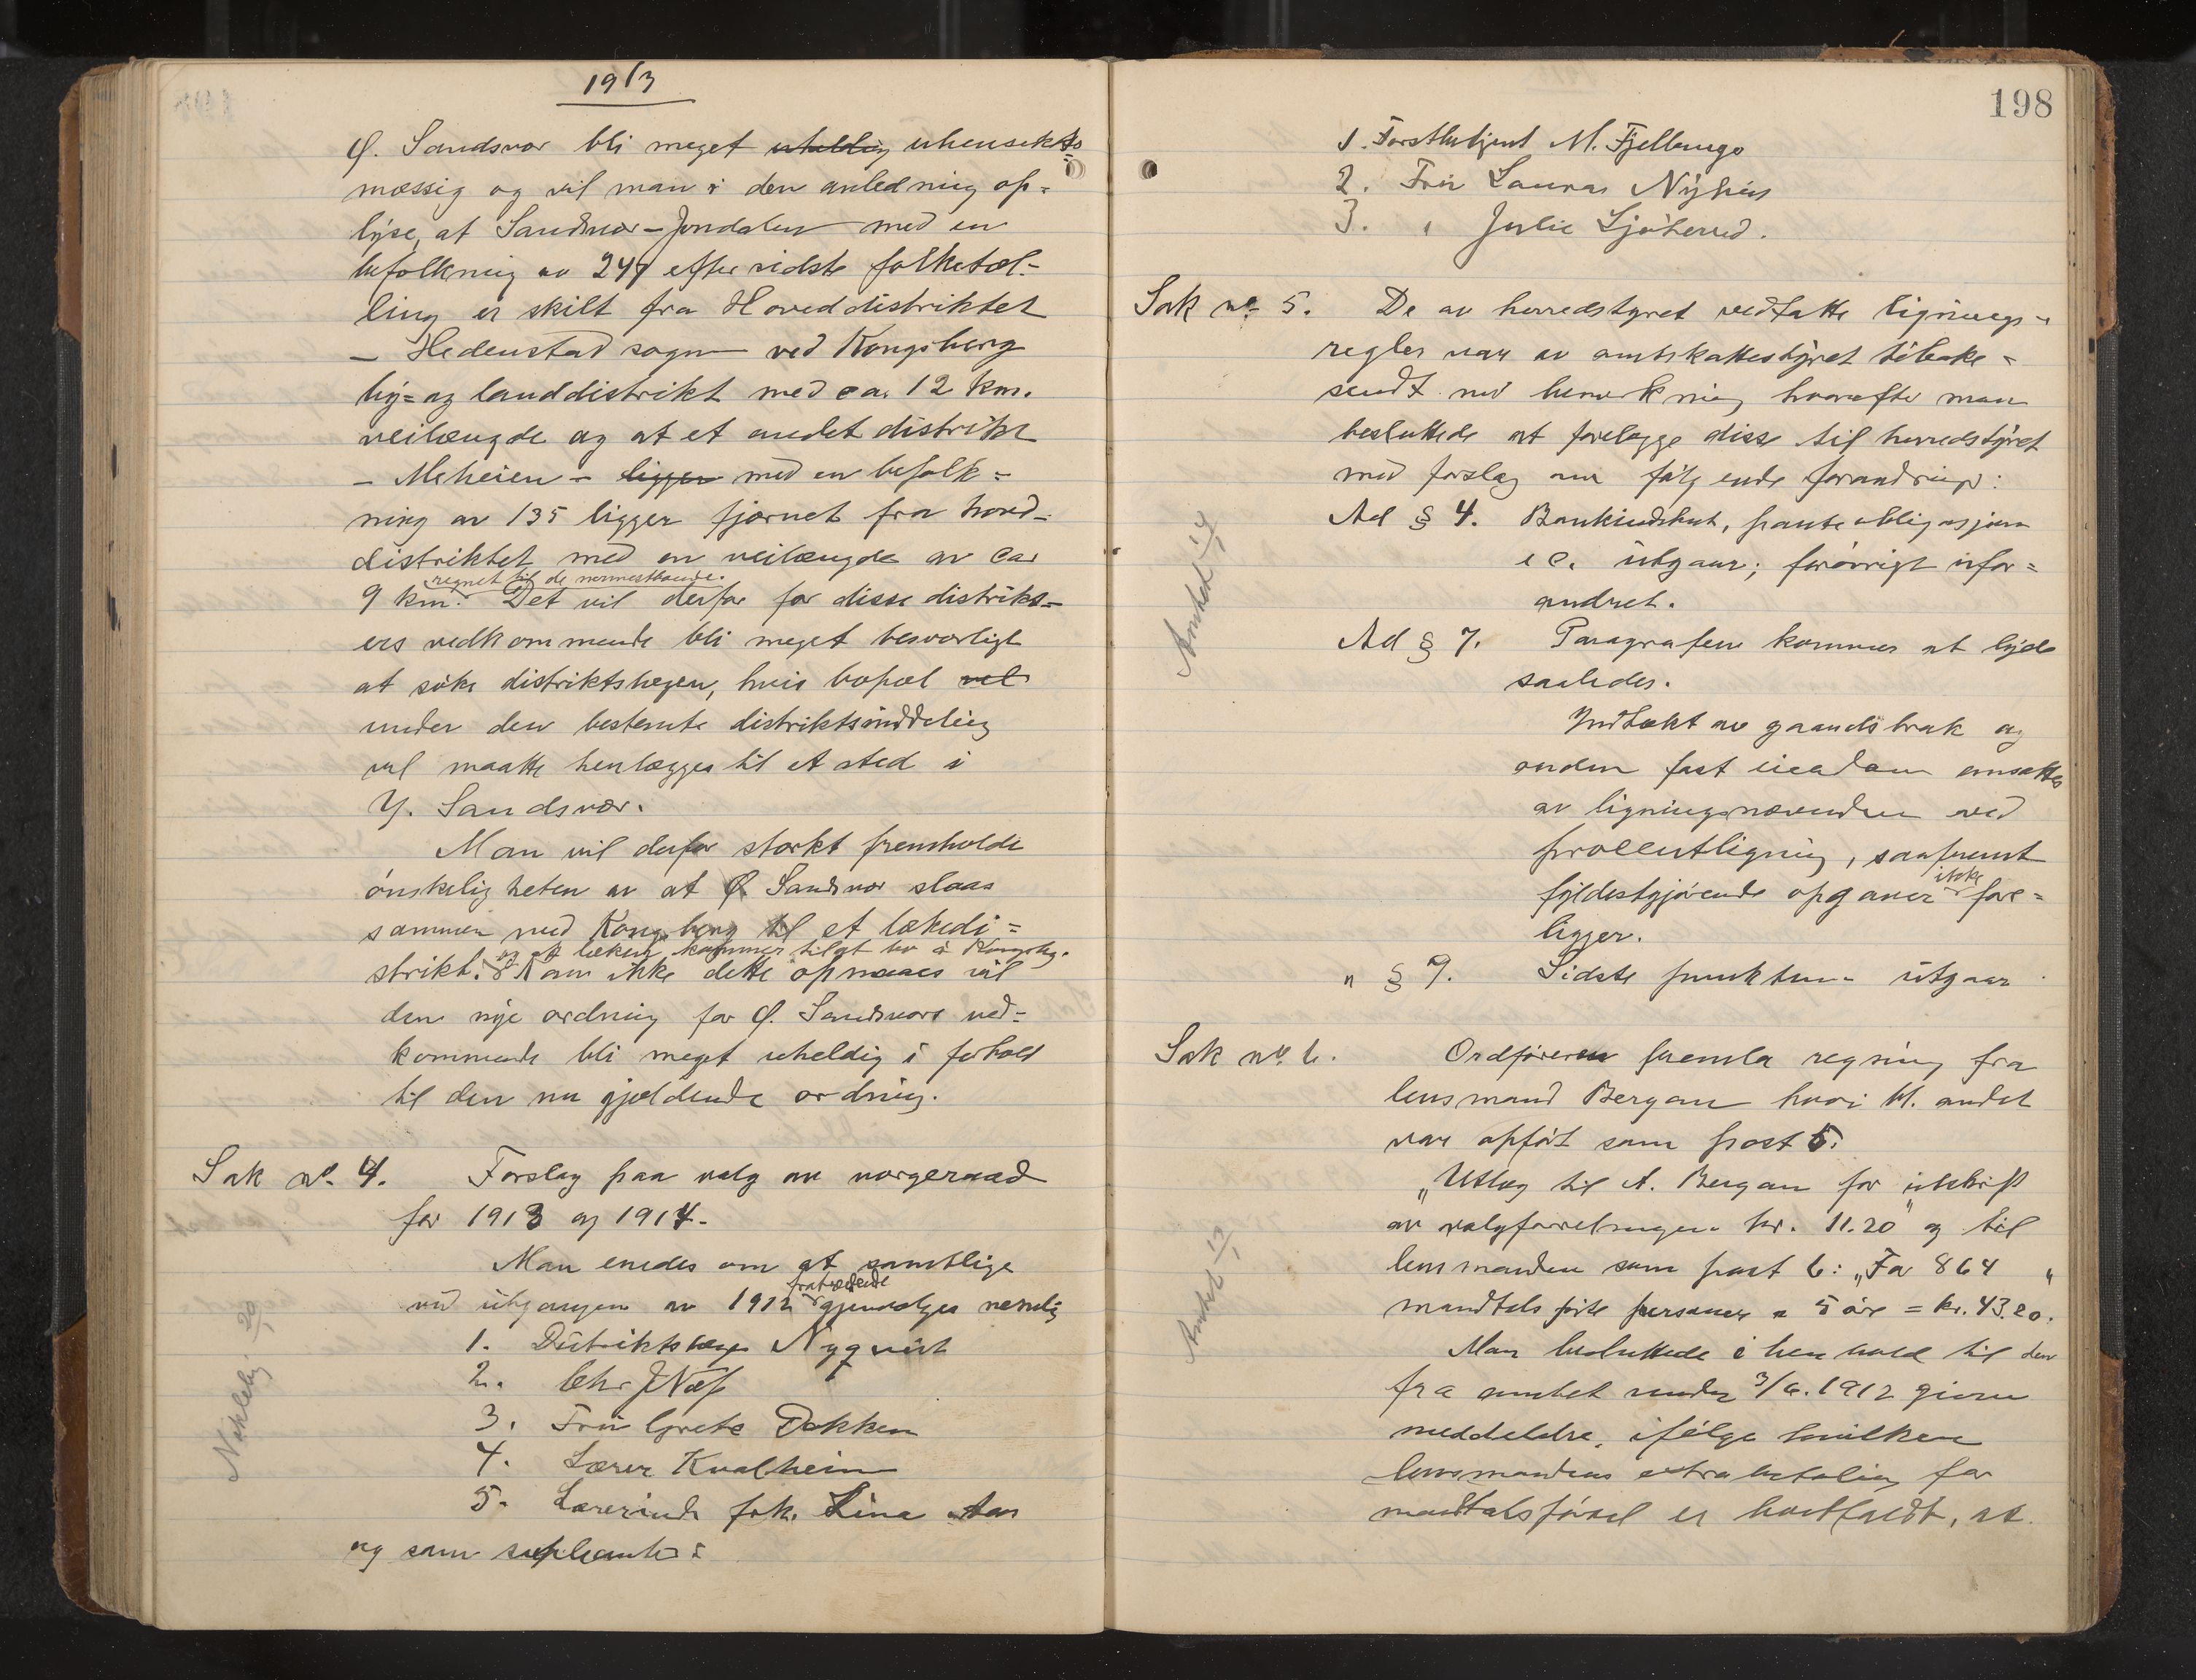 1913
Ø. Sandsvær bli meget uheldig uhensigts
mæssig og vil man i den anledning op-
lyse, at Sandsvær-Jondalen med en
befolkning av 247 efter sidste folketæl-
ling er skilt fra Hoveddistriktet
- Hedenstad sogn ved Kongsberg
by- og landdistrikt med ca. 12 km.
veilængde og at et andet distrikt
- Meheien - ligger med en befolk-
ning av 135 ligger fjærnet fra hoved-
distriktet med en veilængde av ca
regnet til de nærmestboende.
9 km. Det vil derfor for disse distrikt-
ers vedkommende bli meget besværligt
at søke distriktslægen, hvis bopæl vil
under den bestemte distriktsinddeling
vil maatte henlægges til et sted i
Y. Sandsvær.
Man vil derfor stærkt fremholde
ønskeligheten av at Ø. Sandsvær slaaes
sammen med Kongsberg til et lækedi-
og at lækeren kommer til at bo i Kongsbg.
strikt. Kan ikke dette opnaaes vil
den nye ordning for Ø. Sandsværs ved-
kommende bli meget uheldig i forhold
til den nu gjældende ordning.
Sak no. 4. Forslag paa valg av vergeraad
for 1913 og 1914.
Man enedes om at samtlige
fratrædende
ved utgangen av 1912 gjenvælges nemlig
1. Distriktslæge Nyqvist
2. Chr. J Næf
3. Fru Grete Dokken
4. Lærer Kvalheim
5. Lærerinde frk. Lina Aas
og som supleanter:
Nikleby. 20/1
198
1. Forstbetjent M. Fjellberg
2. Fru Lauras Nyhus
3. " Julie Sjöterud.
Sak no. 5. De av herredstyret vedtatte lignings-
regler var av amtskattestyret tilbake-
sendt med bemerkning hvorefter man
besluttede at forelægge disse til herredstyret
med forslag om følgende forandringer:
Ad § 4. Bankindskut, panteobligasjoner
e c. utgaar; forøvrigt ufor-
andret.
Ad § 7. Paragrafen kommer at lyde
saaledes.
Indtækt av gaardsbruk og
anden fast eiendom ansættes
av ligningsnævnden ved
procentligning, saafremt
ikke
fyldestgjørende opgaver fore-
ligger.
" § 9. Sidste punktum utgaar.
Anført 14/1
Sak no. 6. Ordføreren fremla regning fra
lensmand Bergan hvori bl. andet
var opført som post 5:
"Utlæg til A. Bergan for utskrift
av valgforretningen kr. 11.20" og til
lensmanden som post 6: "For 864 "
mandtalsførte personer a 5 øre = kr. 43.20.
Man besluttede i henhold til den
fra amtet under 3/6. 1912 givne
meddelelse, ifølge hvilken
lensmandens extra betaling for
mandtalsførsel er bortfaldt, at